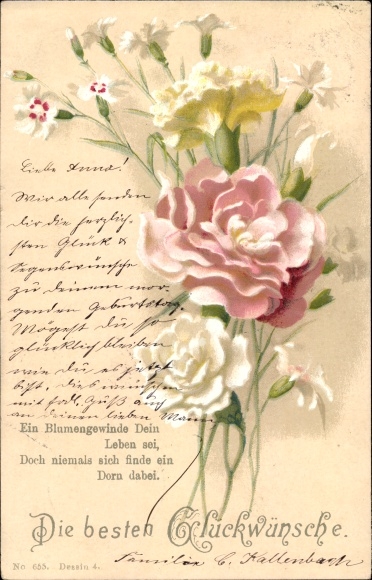 Liebe Anna!
Wir alle senden
Dir die herzlich-
sten Glück &
Segenswünsche
zu deinem mor-
genden Geburtstag.
Mögest du so
glücklich bleiben
wie du es jetzt
bist, dies wünschen
mit frdl. Gruß auch
an deinen lieben Mann
Ein Blumengewinde Dein
Leben sei,
Doch niemals sich finde ein
Dorn dabei.
Die besten Glückwünsche.
Familie C. Kallenbach
No. 655. Dessin 4.